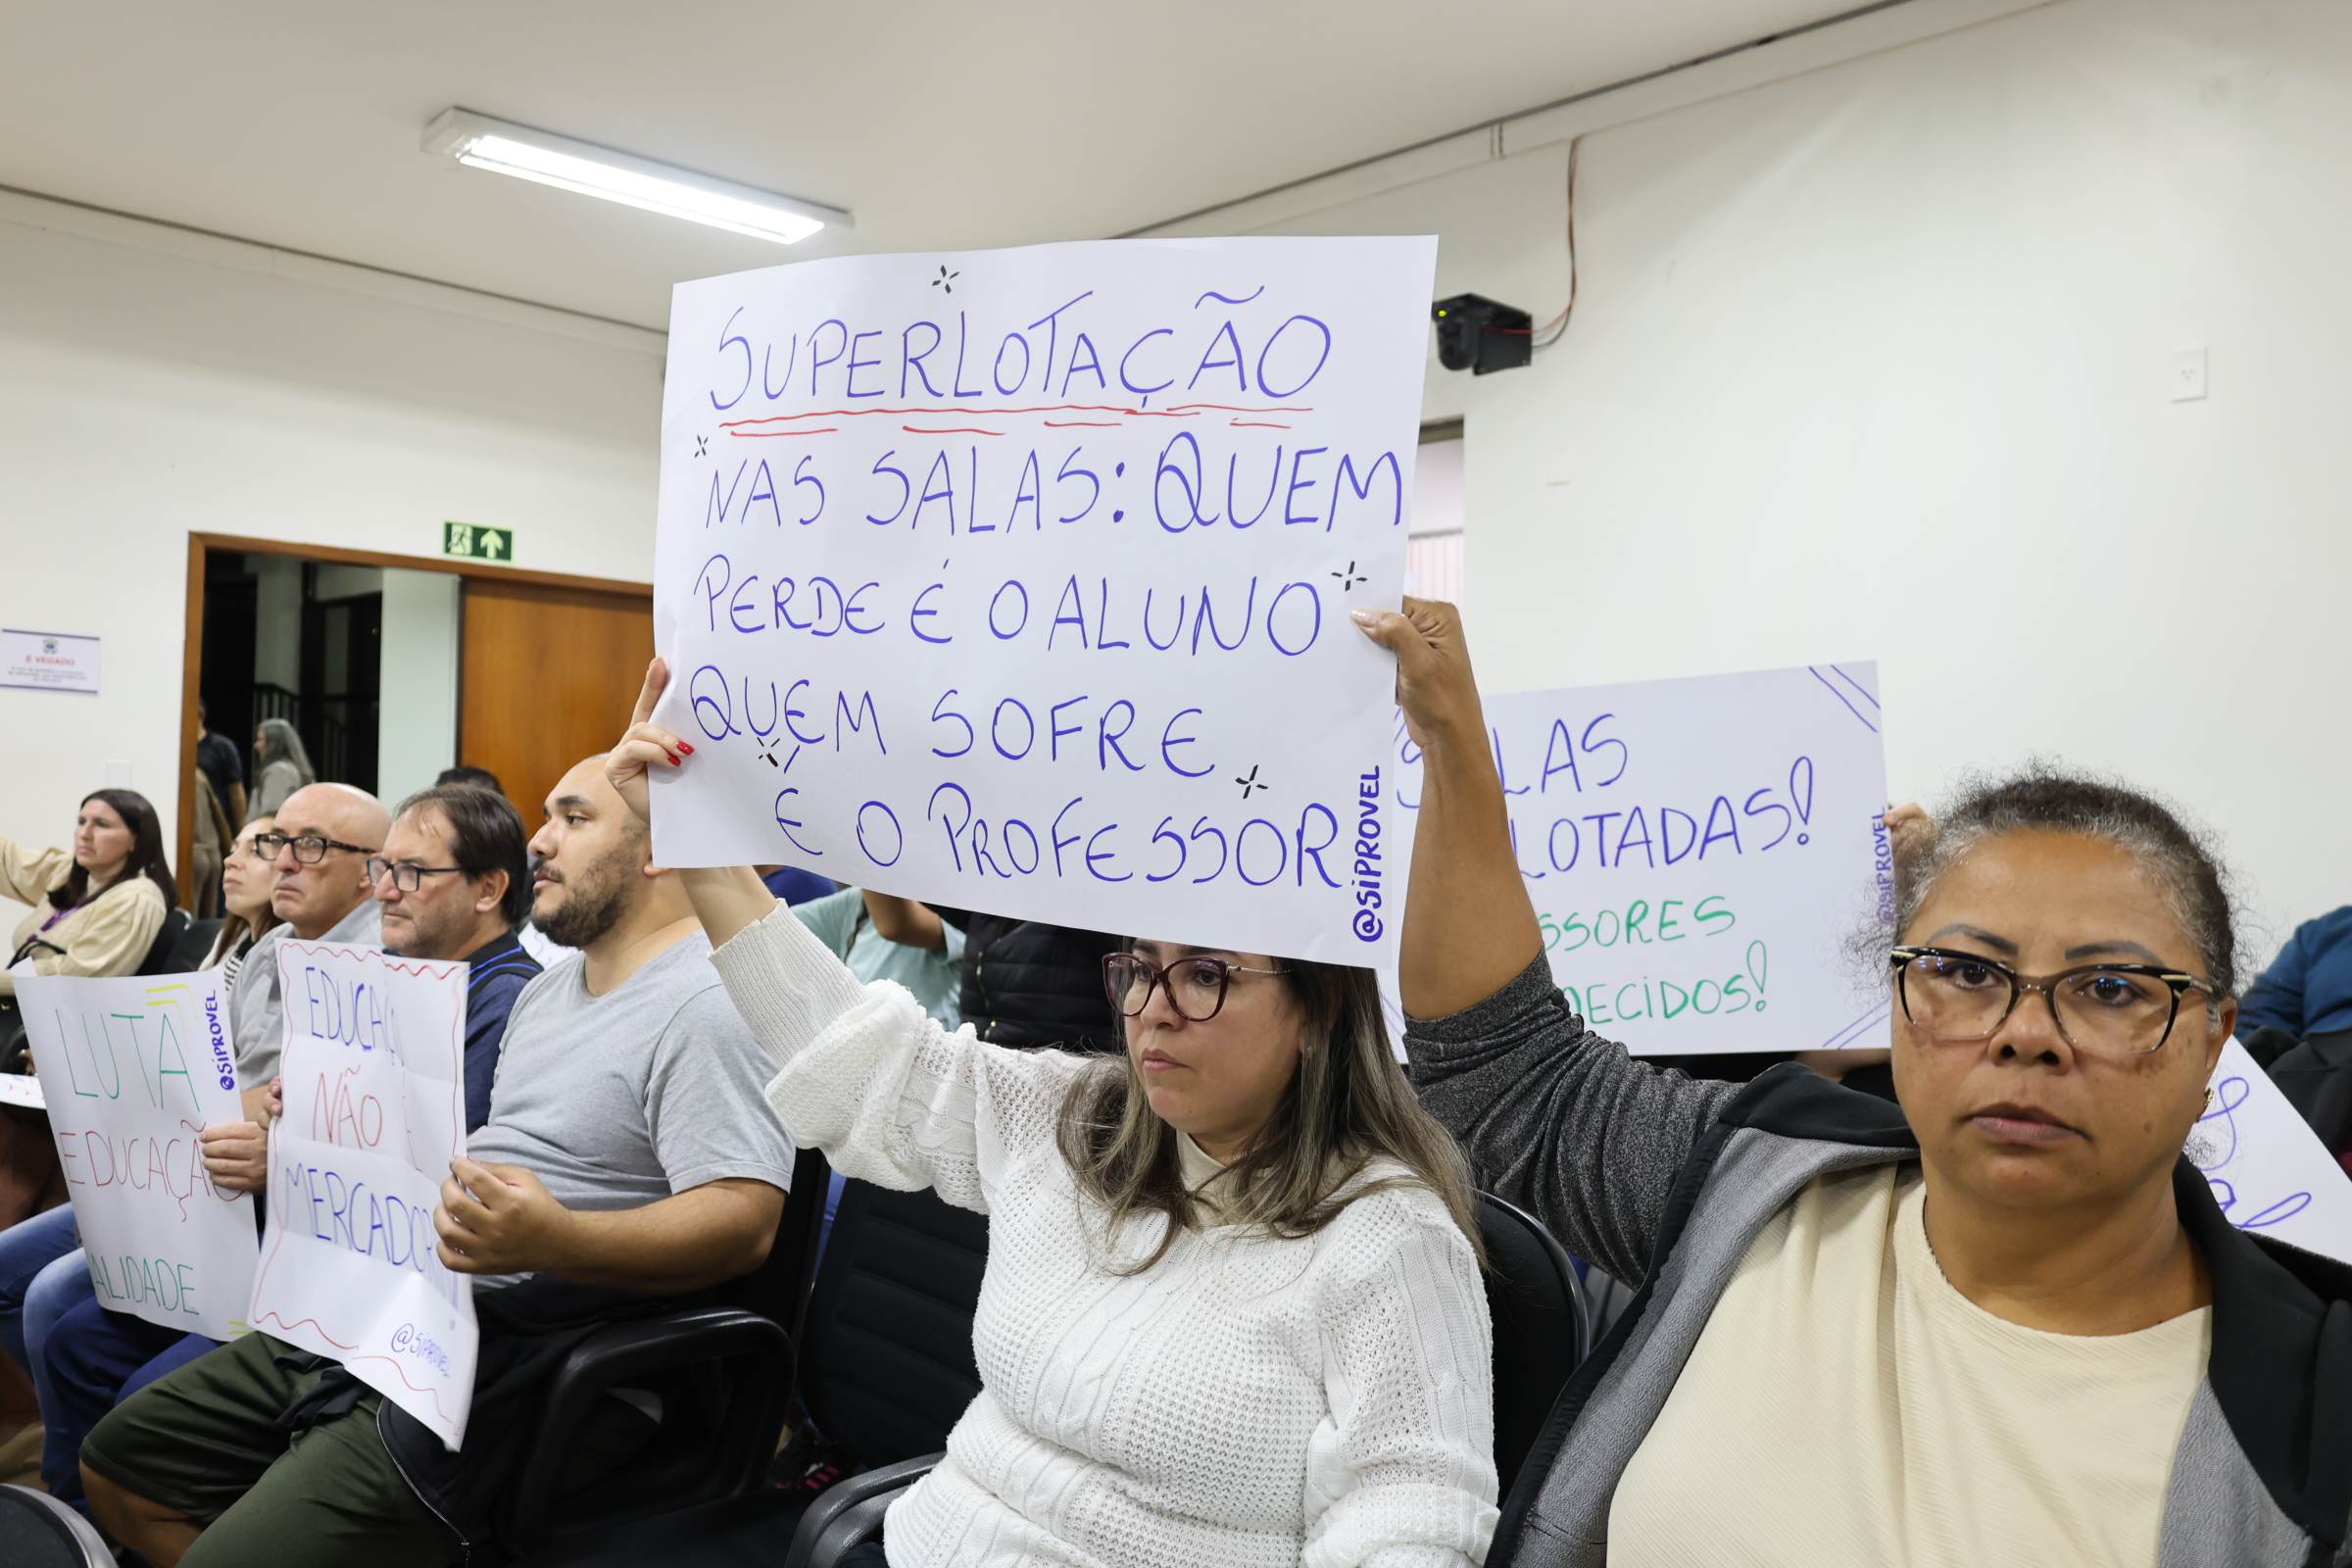 SUPERLOTAÇÃO
NAS SALAS: QUEM
PERDE É O ALUNO
QUEM SOFRE
É O PROFESSOR
@SIPROVEL
LAS
LOTADAS!
SSORES
DECIDOS!
@SIPROVEL
LUTA
EDUCAÇÃO
ALIDADE
@SIPROVEL
EDUCAÇ
NÃO É
MERCADOR
@SIPROVEL
É VEDADO